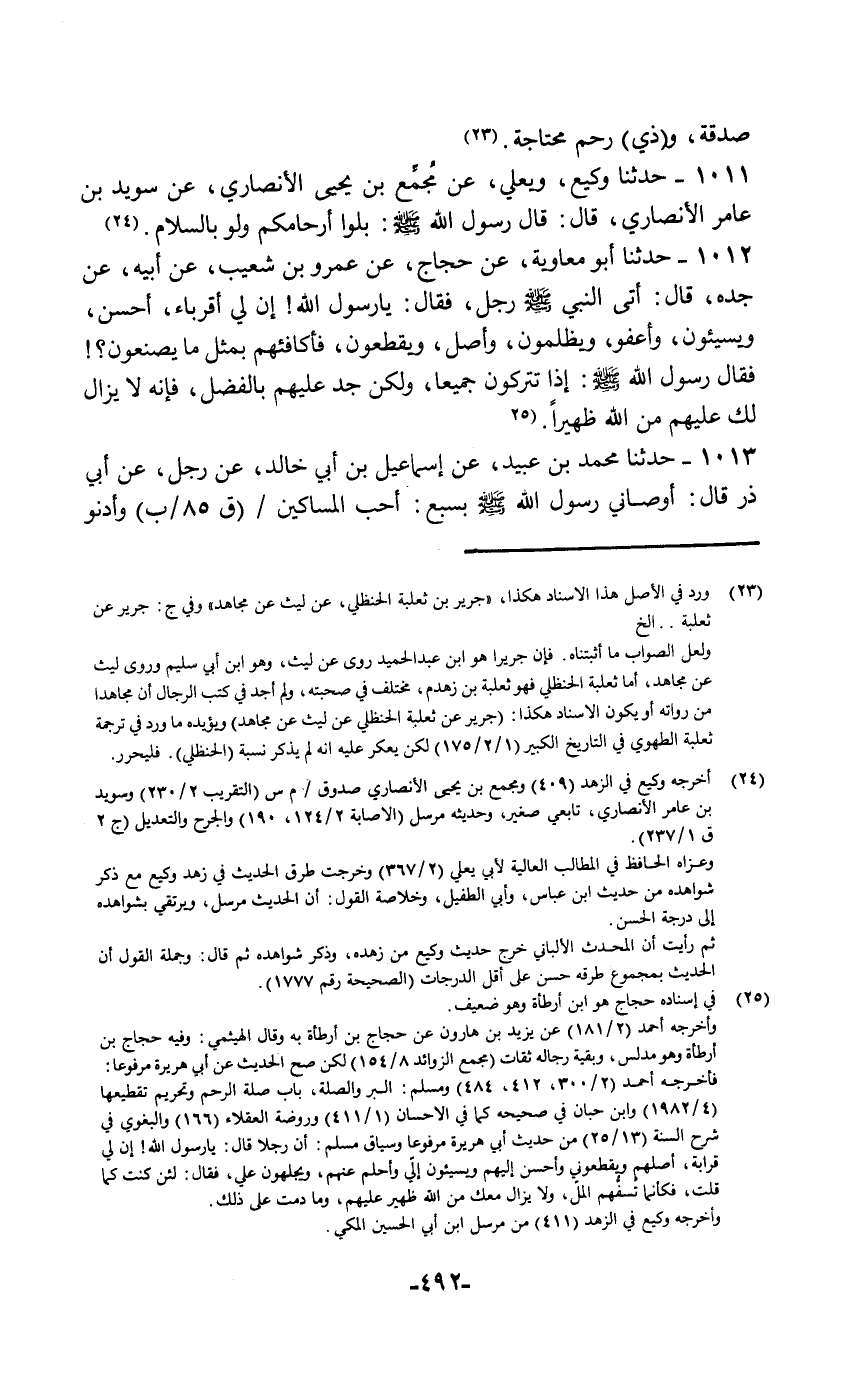 صدقة، و(ذي) رحم محتاجة. (٢٣)
١٠١١ ـ حدثنا وكيع، ويعلي، عن مُجمِّع بن يحيى الأنصاري، عن سويد بن
عامر الأنصاري، قال: قال رسول الله ﷺ: بلوا أرحامكم ولو بالسلام. (٢٤)
١٠١٢ ـ حدثنا أبو معاوية، عن حجاج، عن عمرو بن شعيب، عن أبيه، عن
جده، قال: أتى النبي ﷺ رجل، فقال: يارسول الله! إن لي أقرباء، أحسن،
ويسيئون، وأعفو، ويظلمون، وأصل، ويقطعون، فأكافئهم بمثل ما يصنعون؟!
فقال رسول الله ﷺ: إذا تتركون جميعا، ولكن جد عليهم بالفضل، فإنه لا يزال
لك عليهم من الله ظهيراً. (٢٥
١٠١٣ ـ حدثنا محمد بن عبيد، عن إسماعيل بن أبي خالد، عن رجل، عن أبي
ذر قال: أوصاني رسول الله ﷺ بسبع: أحب المساكين / (ق ٨٥/ب) وأدنو
(٢٣) ورد في الأصل هذا الاسناد هكذا، «جرير بن ثعلبة الحنظلي، عن ليث عن مجاهد» وفي ج: جرير عن
ثعلبة .. الخ
ولعل الصواب ما أثبتناه. فإن جريرا هو ابن عبدالحميد روى عن ليث، وهو ابن أبي سليم وروى ليث
عن مجاهد، أما ثعلبة الحنظلي فهو ثعلبة بن زهدم، مختلف في صحبته، ولم أجد في كتب الرجال أن مجاهدا
من رواته أو يكون الاسناد هكذا: (جرير عن ثعلبة الحنظلي عن ليث عن مجاهد) ويؤيده ما ورد في ترجمة
ثعلبة الطهوي في التاريخ الكبير (١٧٥/٢/١) لكن يعكر عليه انه لم يذكر نسبة (الحنظلي). فليحرر.
(٢٤) أخرجه وكيع في الزهد (٤٠٩) ومجمع بن يحيى الأنصاري صدوق / م س (التقريب ٢/ ٢٣٠) وسويد
بن عامر الأنصاري، تابعي صغير، وحديثه مرسل (الاصابة ١٢٤/٢، ١٩٠) والجرح والتعديل (ج ٢
ق ٢٣٧/١).
وعزاه الحافظ في المطالب العالية لأبي يعلي (٣٦٧/٢) وخرجت طرق الحديث في زهد وكيع مع ذكر
شواهده من حديث ابن عباس، وأبي الطفيل، وخلاصة القول: أن الحديث مرسل، ويرتقي بشواهده
إلى درجة الحسن.
ثم رأيت أن المحدث الألباني خرج حديث وكيع من زهده، وذكر شواهده ثم قال: وجملة القول أن
الحديث بمجموع طرقه حسن على أقل الدرجات (الصحيحة رقم ١٧٧٧).
(٢٥) في إسناده حجاج هو ابن أرطأة وهو ضعيف.
وأخرجه أحمد (١٨١/٢) عن يزيد بن هارون عن حجاج بن أرطأة به وقال الهيثمي: وفيه حجاج بن
أرطأة وهو مدلس، وبقية رجاله ثقات (مجمع الزوائد ١٥٤/٨) لكن صح الحديث عن أبي هريرة مرفوعا:
فأخرجه أحمد (٣٠٠/٢، ٤١٢، ٤٨٤) ومسلم: البر والصلة، باب صلة الرحم وتحريم تقطيعها
(١٩٨٢/٤) وابن حبان في صحيحه كما في الاحسان (٤١١/١) وروضة العقلاء (١٦٦) والبغوي في
شرح السنة (٢٥/١٣) من حديث أبي هريرة مرفوعا وسياق مسلم: أن رجلا قال: يارسول الله! إن لي
قرابة، أصلهم ويقطعوني وأحسن إليهم ويسيئون إليّ وأحلم عنهم، ويجهلون علي، فقال: لئن كنت كما
قلت، فكأنما تُسفُّهم الملّ، ولا يزال معك من الله ظهير عليهم، وما دمت على ذلك.
وأخرجه وكيع في الزهد (٤١١) من مرسل ابن أبي الحسين المكي.
-٤٩٢-